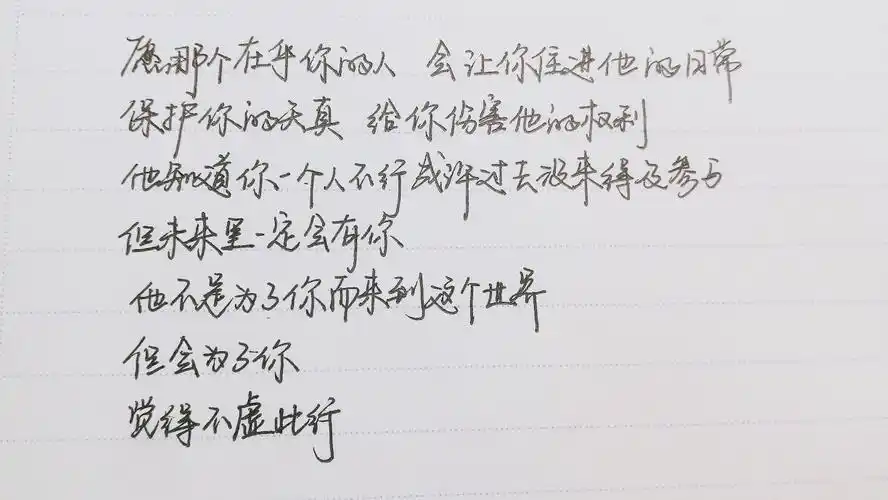 愿那个在乎你的人 会让你住进他的日常
保护你的天真 给你伤害他的权利
他知道你一个人不行 或许过去没来得及参与
但未来里一定会有你
他不是为了你而来到这个世界
但会为了你
觉得不虚此行